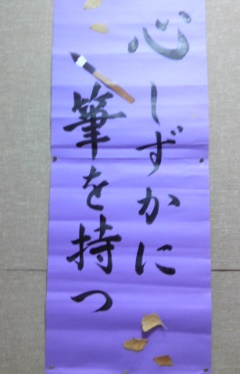 心しずかに
筆を持つ